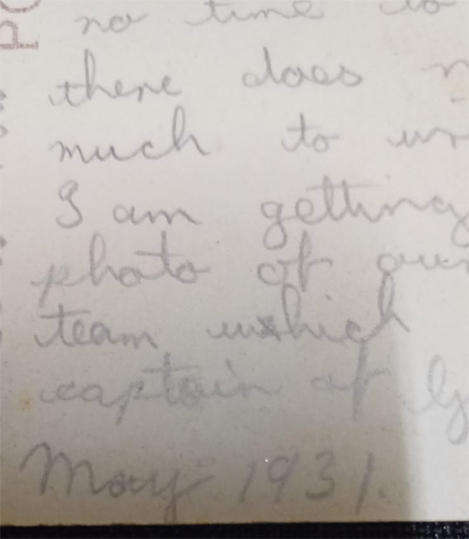 no time to
there does
much to
I am getting
photo of our
team which
captain of
May 1931.